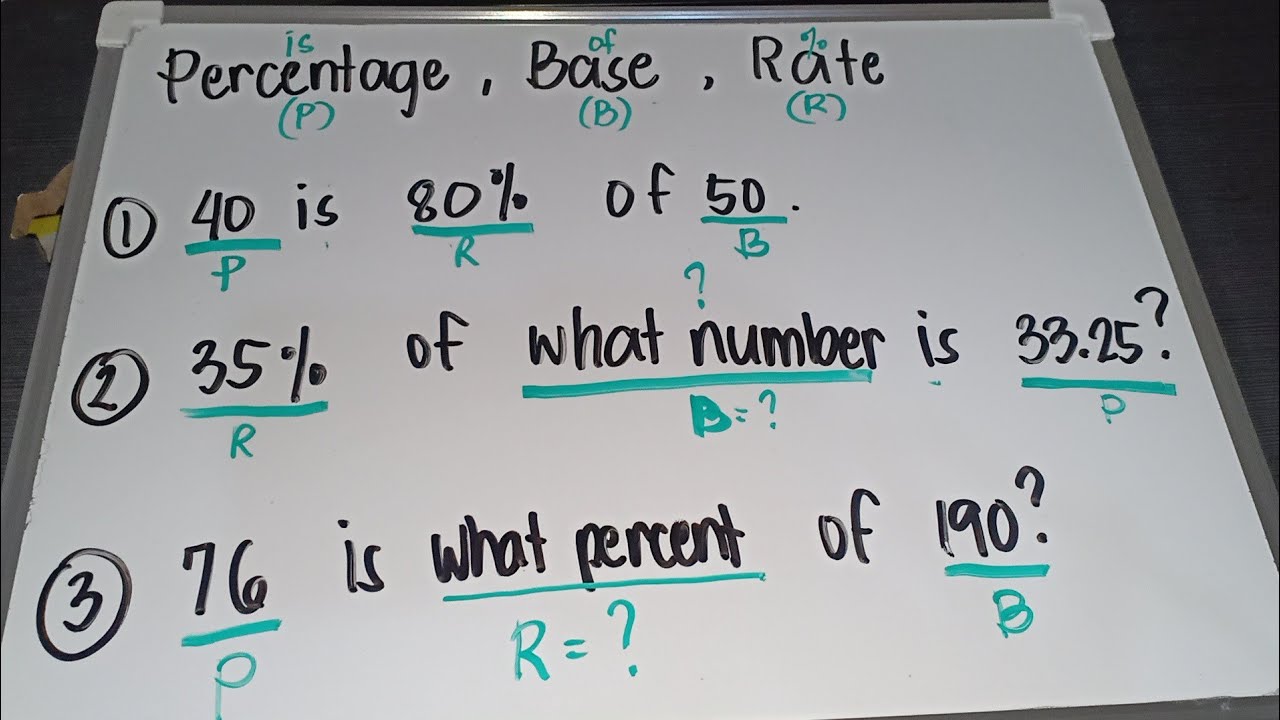 is of %
Percentage, Base, Rate
(P) (B) (R)
① 40 is 80% of 50.
P R B
?
② 35% of what number is 33.25?
R B=? P
③ 76 is what percent of 190?
P R=? B